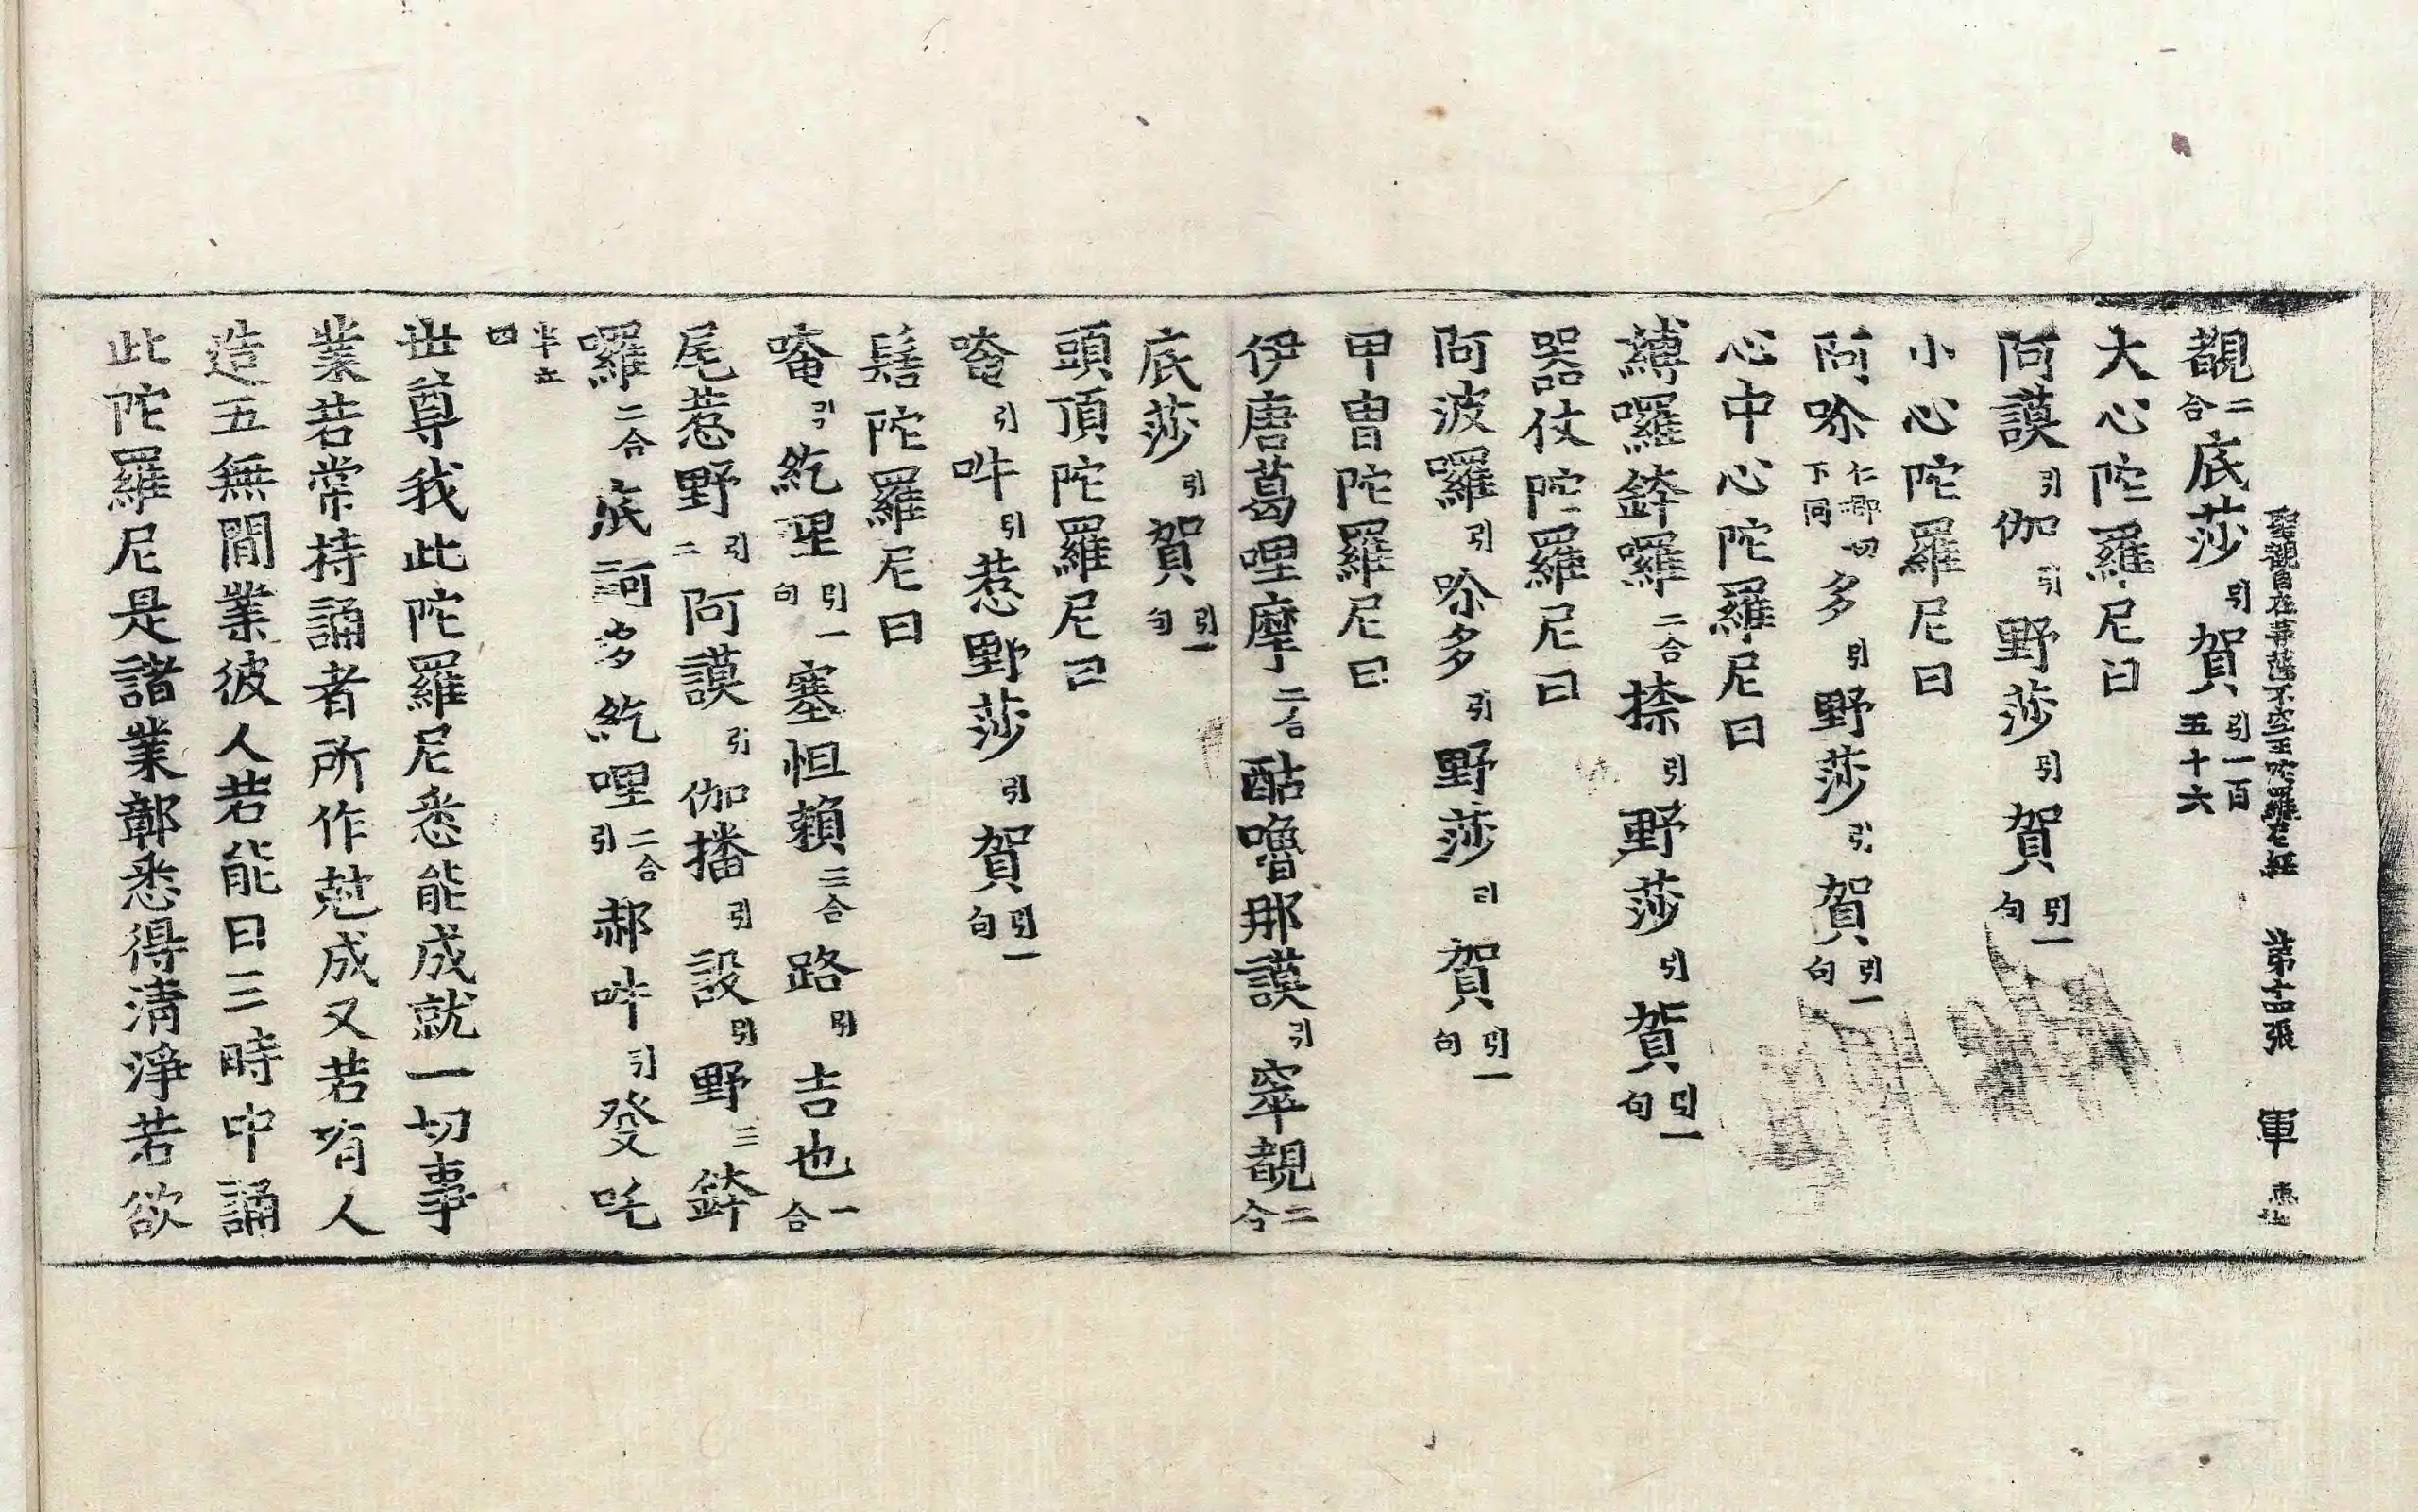 聖觀自在菩薩不空王陀羅尼經 第十四張 軍
覩二合底莎引賀引一百五十六
大心陀羅尼曰
阿謨引伽引野莎引賀引一句
小心陀羅尼曰
阿哳仁郰切下同多引野莎引賀引一句
心中心陀羅尼曰
縛囉鉢囉二合捺引野莎引賀引一句
器仗陀羅尼曰
阿波囉引哳多引野莎引賀引一句
甲冑陀羅尼曰
伊唐葛哩摩二合酤嚕那謨引窣覩二合
底莎引賀引一句
頭頂陀羅尼曰
唵引吽引惹野莎引賀引一句
髻陀羅尼曰
唵引紇哩引一句塞怛賴三合路引吉也二合
尾惹野引二阿謨引伽播引設引野三鉢
囉二合底訶多紇哩二合引郝吽引癹吒
半立四
世尊我此陀羅尼悉能成就一切事
業若常持誦者所作尅成又若有人
造五無間業彼人若能日三時中誦
此陀羅尼是諸業鄣悉得清淨若欲